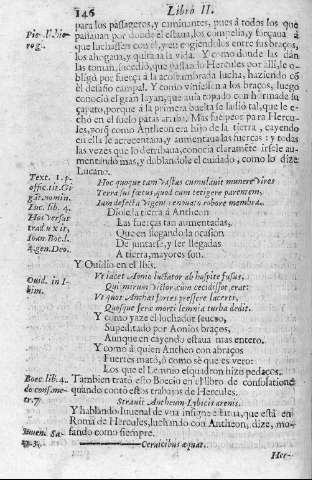 146 Libro II.
para los passageros, y caminantes, pues a todos los que
Pie. li. hie
rog.
passauan por donde el estaua, los compelia, y forçaua à
que luchassen con el, y en cogiendolos entre sus braços,
los ahogaua, y quitaua la vida. Y como donde las dan
las toman, sucedio, que passando Hercules por alli, le o-
bligó por fuerça à la acostumbrada lucha, haziendo cõ
el desafio campal. Y como viniessen a los braços, luego
conocio el gran layan, que auia topado con
çapato, porque à la primera buelta se hallò tal, que le e-
chò en el suelo patas arriba. Mas fue peor para Hercu-
les, porq como Antheon era hijo de la tierra, cayendo
en ella se acrecentaua, y aumentaua las fuerças: y todas
las vezes que lo derribaua, conocia claramẽte yrsele au-
mentando mas, y dablandole el cuidado, como lo dize
Lucano.
Text. 1. p.
offic. tit. Gi
gãt. nomin.
Luc. lib. 4.
Hoc quoque tam vastas cumulauit munere vires
Terra sui foetus, quod cum tetigere parentem,
Iam defecta vigent renouato robore membra.
Diole la tierra à Antheon
Las fuerças tan aumentadas,
Que en llegando la ocasion
De juntarse, y ser llegadas
A tierra, mayores son.
Ioan Boc. l.
4. gen. Deo.
Y Ouidio en el Ibis.
Ouid. in I-
bim.
Vt iacet Aonio luctator ab hospite fusus,
Qui mirum victor cum cecidisset, erat:
Vt quos Anthæi fortes pressere lacerti,
Quosque feræ morti lemnia turba dedit.
Y como yaze el luchador
Supeditado por Aonios braços,
Aunque en cayendo estaua mas entero.
Y como à quien Antheo con abraços
Fuertes matò, ò como sè que es vero
Los que el Lennio esquadron hizo pedaços.
Boec. lib. 4.
de consone
tr. 7.
Tambien trato esto Boecio en el libro de consolatione
quando contò estos trabajos de Hercules.
Strauit Antheum Lybicis arenis.
Y hablando Iuuenal de vna insigne estatua, que està en
Roma de Hercules, luchando con Antheon, dize, mo-
fando como siempre.
Iuuen. Sa-
ty. 3.
Ceruicibus æquat.
Her-